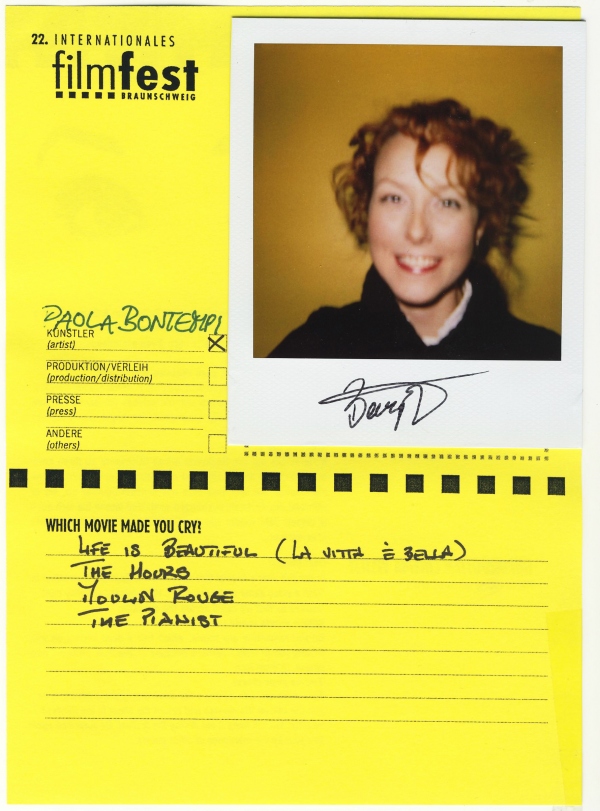 22. INTERNATIONALES
filmfest
BRAUNSCHWEIG
PAOLA BONTEMPI
KÜNSTLER
(artist)
PRODUKTION/VERLEIH
(production/distribution)
PRESSE
(press)
ANDERE
(others)
WHICH MOVIE MADE YOU CRY?
LIFE IS BEAUTIFUL (LA VITTA È BELLA)
THE HOURS
MOULIN ROUGE
THE PIANIST